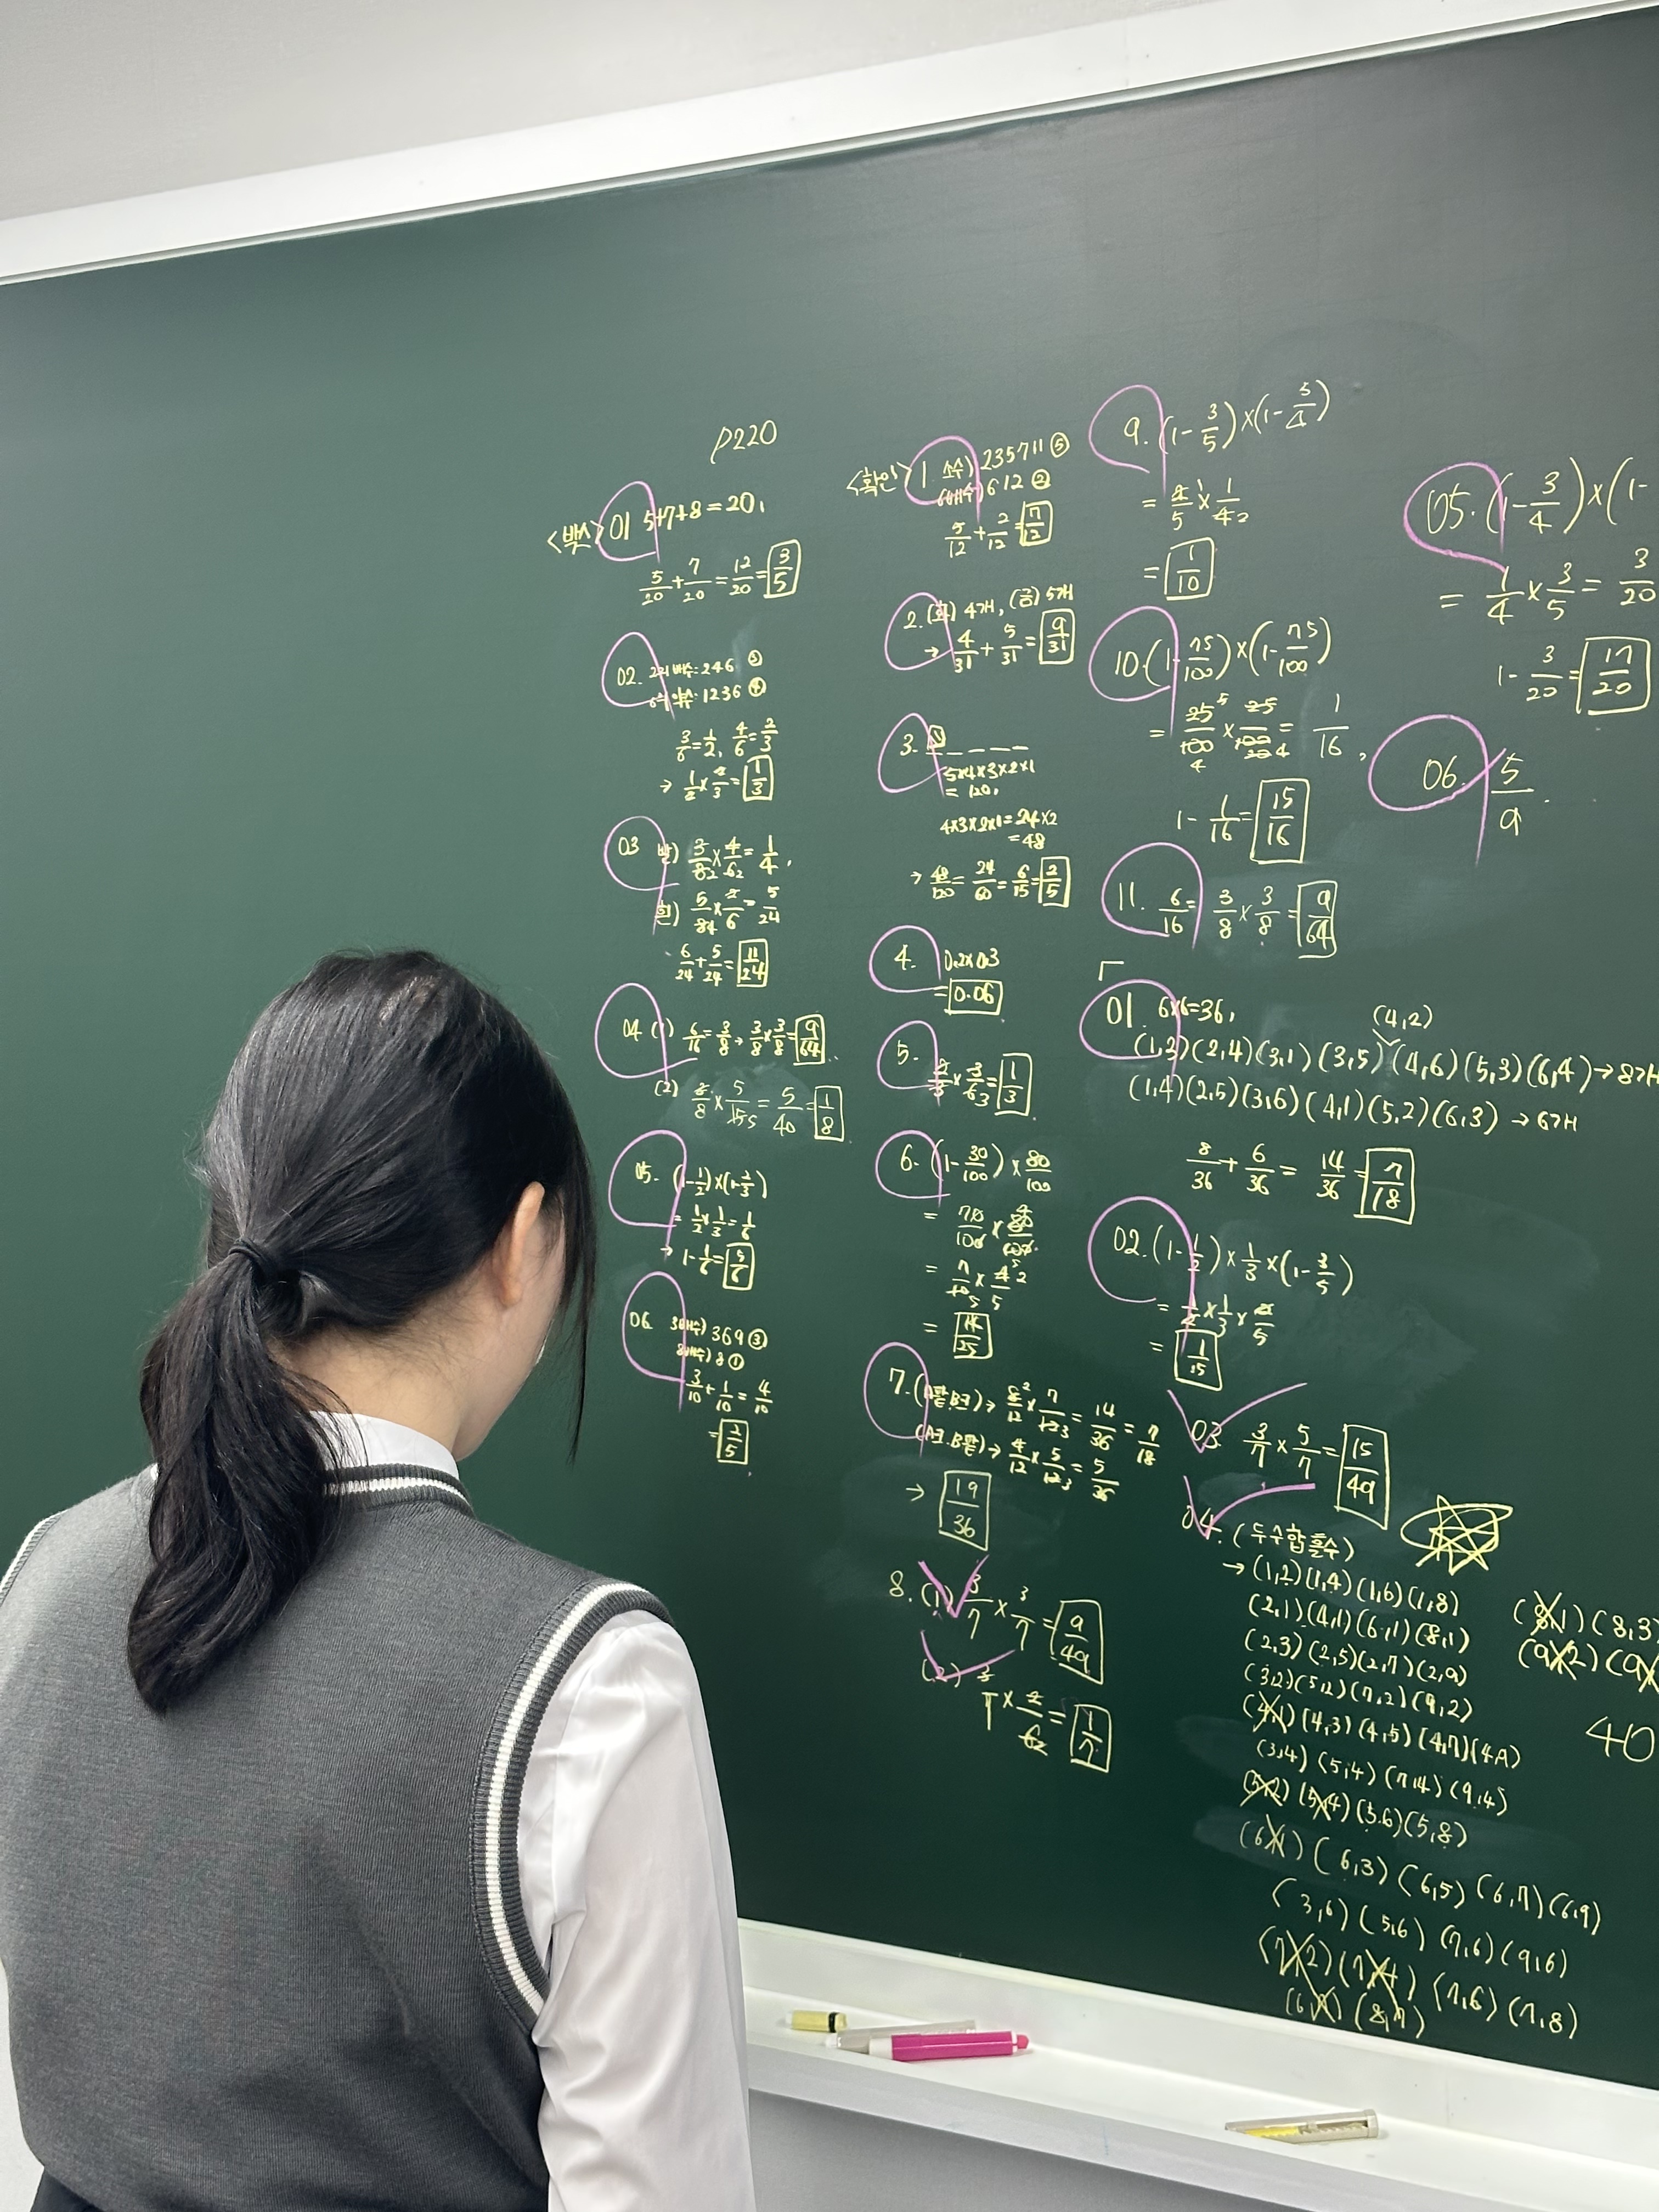 P220
<백스> 01 5+7+8=20,
5/20+7/20=12/20=3/5
02. 2의 배수:246 ③
6의 약수:1236 ④
3/6=1/2, 4/6=2/3
→ 1/2×2/3=1/3
03 빨) 3/8×4/6=1/4,
흰) 5/8×2/6=5/24
6/24+5/24=11/24
04 (1) 6/16=3/8, 3/8×3/8=9/64
(2) 2/8×5/15=5/40=1/8
05. (1-1/2)×(1-2/3)
=1/2×1/3=1/6
→ 1-1/6=5/6
06. 3배수) 369 ③
8배수) 8 ①
3/10+1/10=4/10
=2/5
<확인> 1. 소수) 235711 ⑤
6배수) 612 ②
5/12+2/12=7/12
2. (화) 4개, (금) 5개
→ 4/31+5/31=9/31
3.
5×4×3×2×1
=120,
4×3×2×1=24×2
=48
→ 48/120=24/60=6/15=2/5
4. 0.2×0.3
=0.06
5. 2/3×3/6=1/3
6. (1-30/100)×80/100
=70/100×80/100
=7/10×4/5
=14/25
7. (A팥.B크)→ 8/12×7/12=14/36=7/18
(A크.B팥)→ 4/12×5/12=5/36
→ 19/36
8. (1) 3/7×3/7=9/49
(2) 3/7×2/6=1/7
9. (1-3/5)×(1-3/4)
=2/5×1/4
=1/10
10. (1-75/100)×(1-75/100)
=25/100×25/100=1/16,
1-1/16=15/16
11. 6/16=3/8×3/8=9/64
01. 6×6=36,
(4,2)
(1,3)(2,4)(3,1)(3,5)(4,6)(5,3)(6,4)→8개
(1,4)(2,5)(3,6)(4,1)(5,2)(6,3)→6개
8/36+6/36=14/36=7/18
02. (1-1/2)×1/3×(1-3/5)
=1/2×1/3×2/5
=1/15
03. 3/7×5/7=15/49
04. (두수합 홀수)
→(1,2)(1,4)(1,6)(1,8)
(2,1)(4,1)(6,1)(8,1)
(2,3)(2,5)(2,7)(2,9)
(3,2)(5,2)(7,2)(9,2)
(4,1)(4,3)(4,5)(4,7)(4,9)
(3,4)(5,4)(7,4)(9,4)
(5,2)(5,4)(5,6)(5,8)
(6,1)(6,3)(6,5)(6,7)(6,9)
(3,6)(5,6)(7,6)(9,6)
(7,2)(7,4)(7,6)(7,8)
(8,7)
(8,1)(8,3)
(9,2)(9,
40
05. (1-3/4)×(1-
=1/4×3/5=3/20
1-3/20=17/20
06. 5/9.